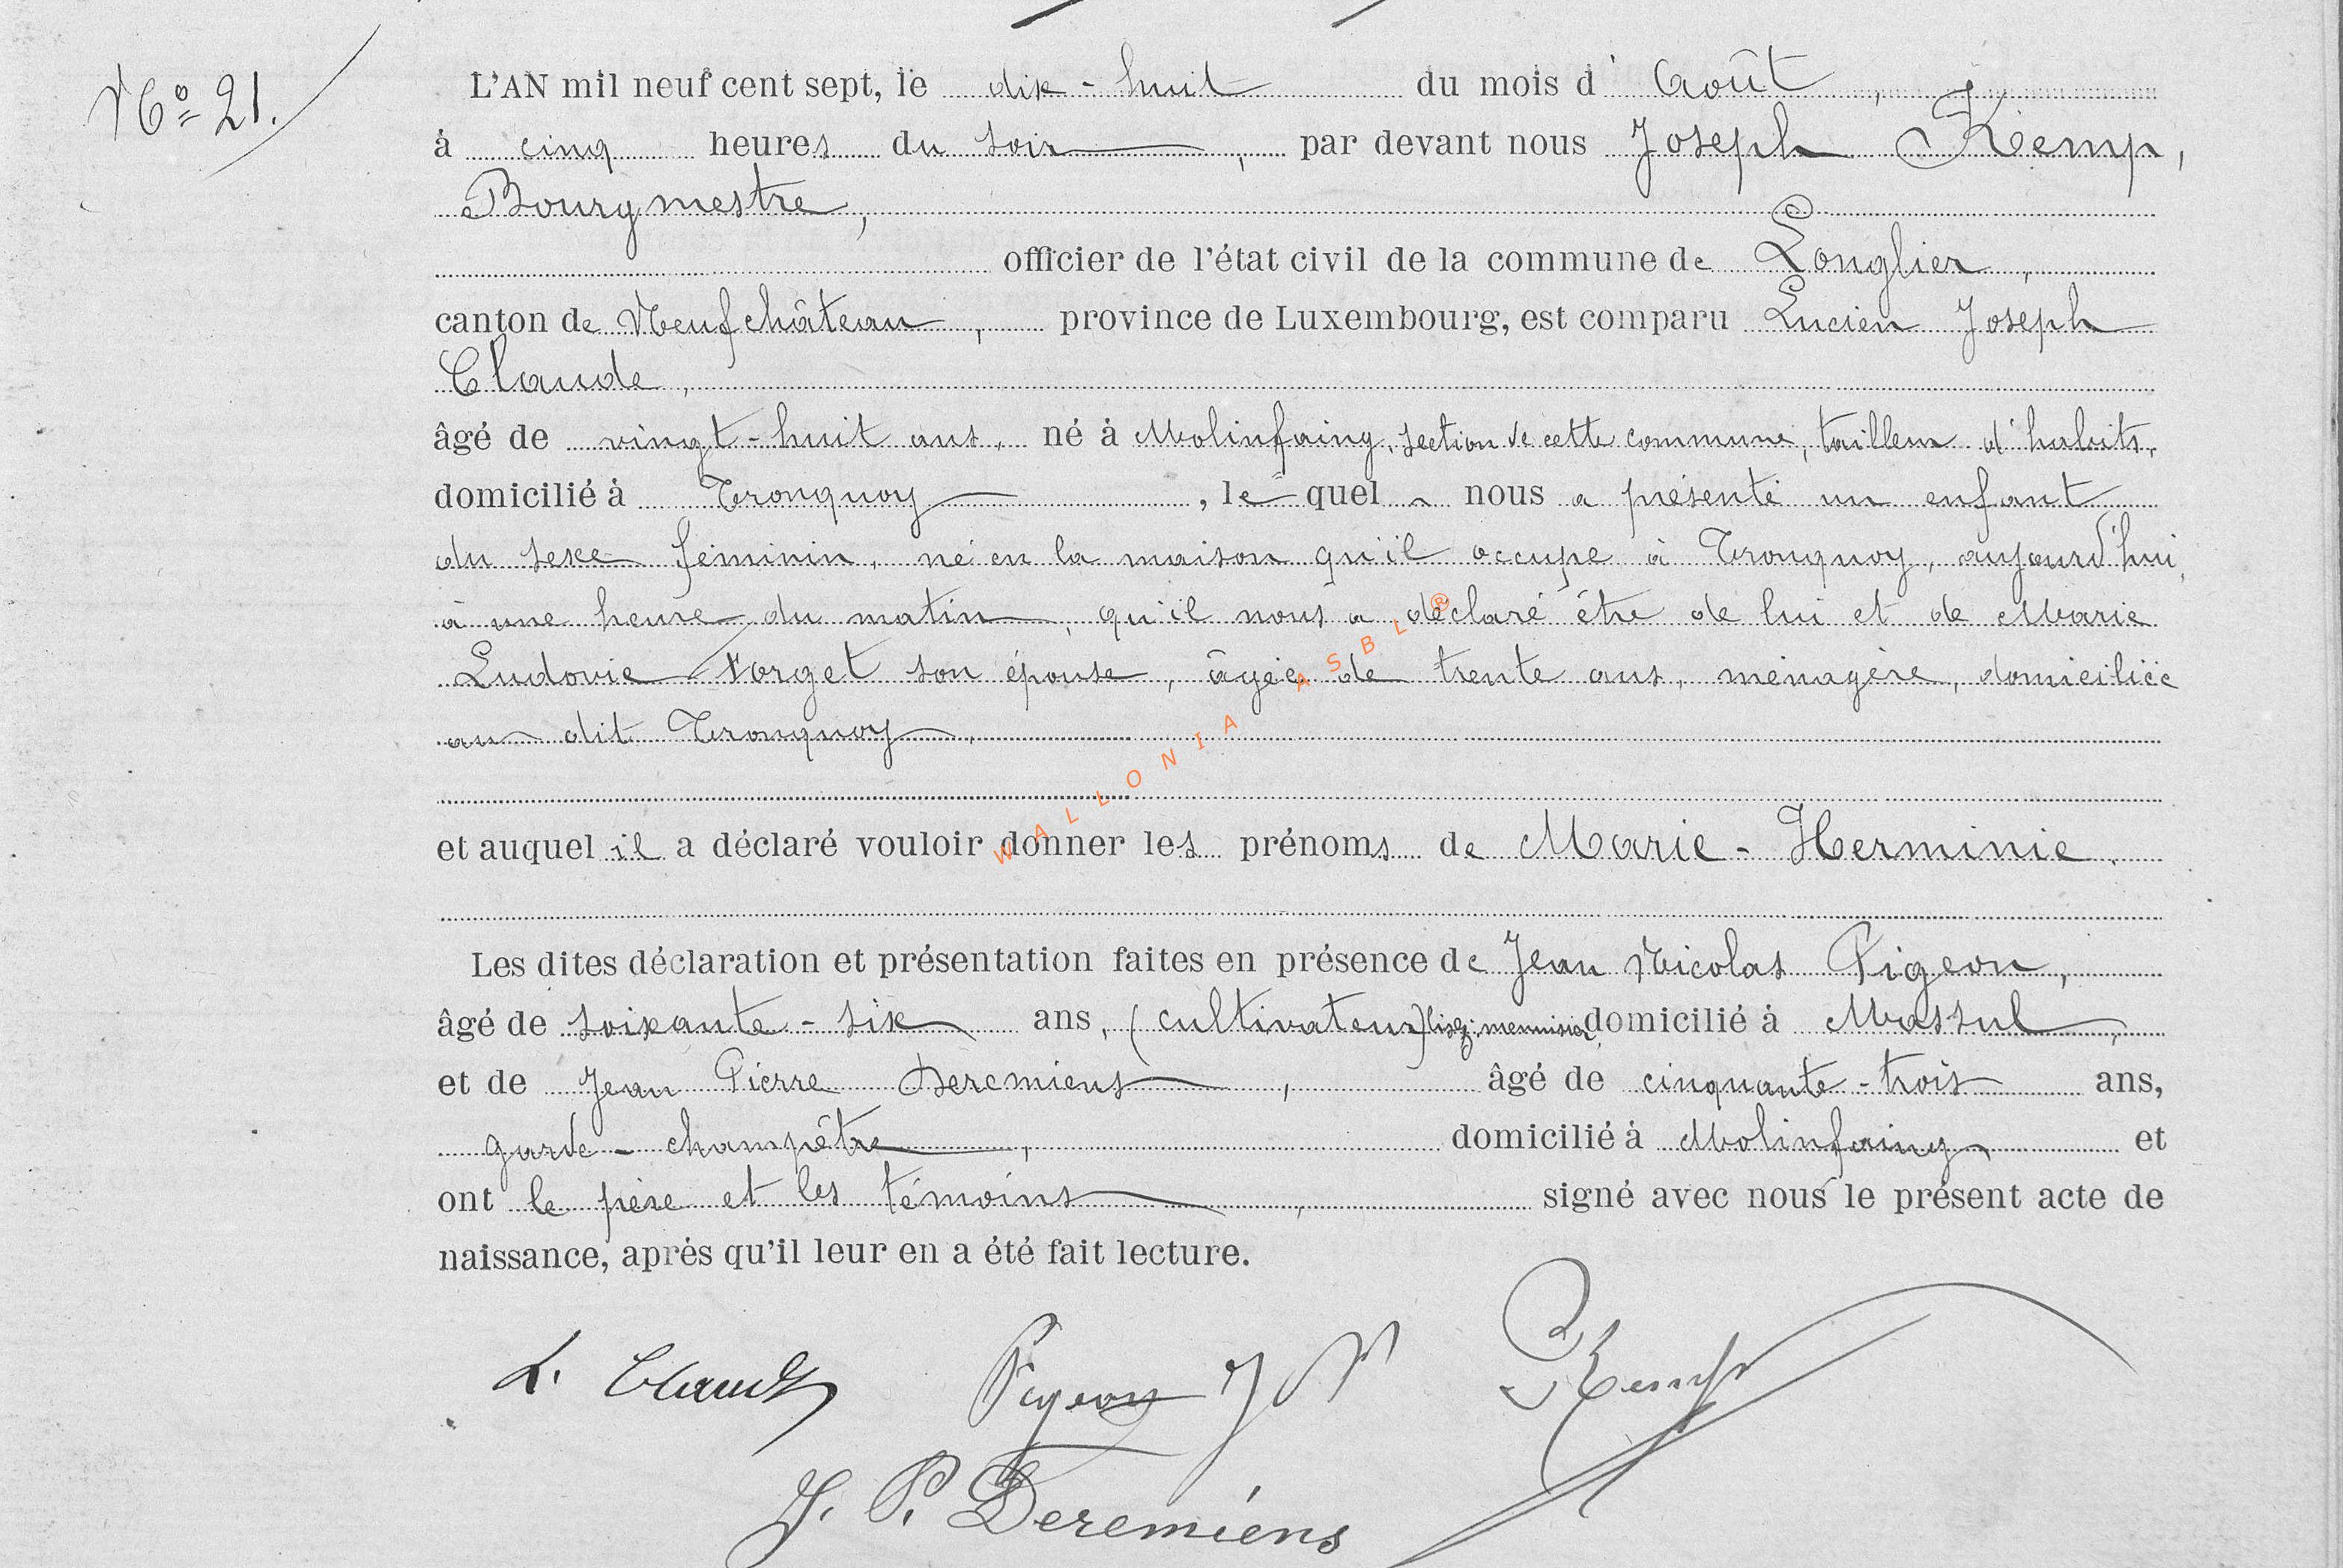 Nº 21.
L'AN mil neuf cent sept, le dix-huit du mois d'Août,
à cinq heures du soir, par devant nous Joseph Kemp,
Bourgmestre,
officier de l'état civil de la commune de Longlier,
canton de Neufchâteau, province de Luxembourg, est comparu Lucien Joseph
Claude,
âgé de vingt-huit ans, né à Molinfaing, section de cette commune, tailleur d'habits,
domicilié à Tronquoy, lequel nous a présenté un enfant
du sexe féminin, né en la maison qu'il occupe à Tronquoy, aujourd'hui,
à une heure du matin, qu'il nous a déclaré être de lui et de Marie
Ludovie Forget son épouse, âgée de trente ans, ménagère, domiciliée
au dit Tronquoy,
et auquel il a déclaré vouloir donner les prénoms de Marie-Herminie.
Les dites déclaration et présentation faites en présence de Jean Nicolas Pigeon,
âgé de soixante-six ans, (cultivateur) lisez: menuisier, domicilié à Massul,
et de Jean Pierre Deremiens, âgé de cinquante-trois ans,
garde-champêtre, domicilié à Molinfaing et
ont le père et les témoins, signé avec nous le présent acte de
naissance, après qu'il leur en a été fait lecture.
L. Claude Pigeon J N Kemp
J. P. Deremiens
WALLONIA ASBL ®